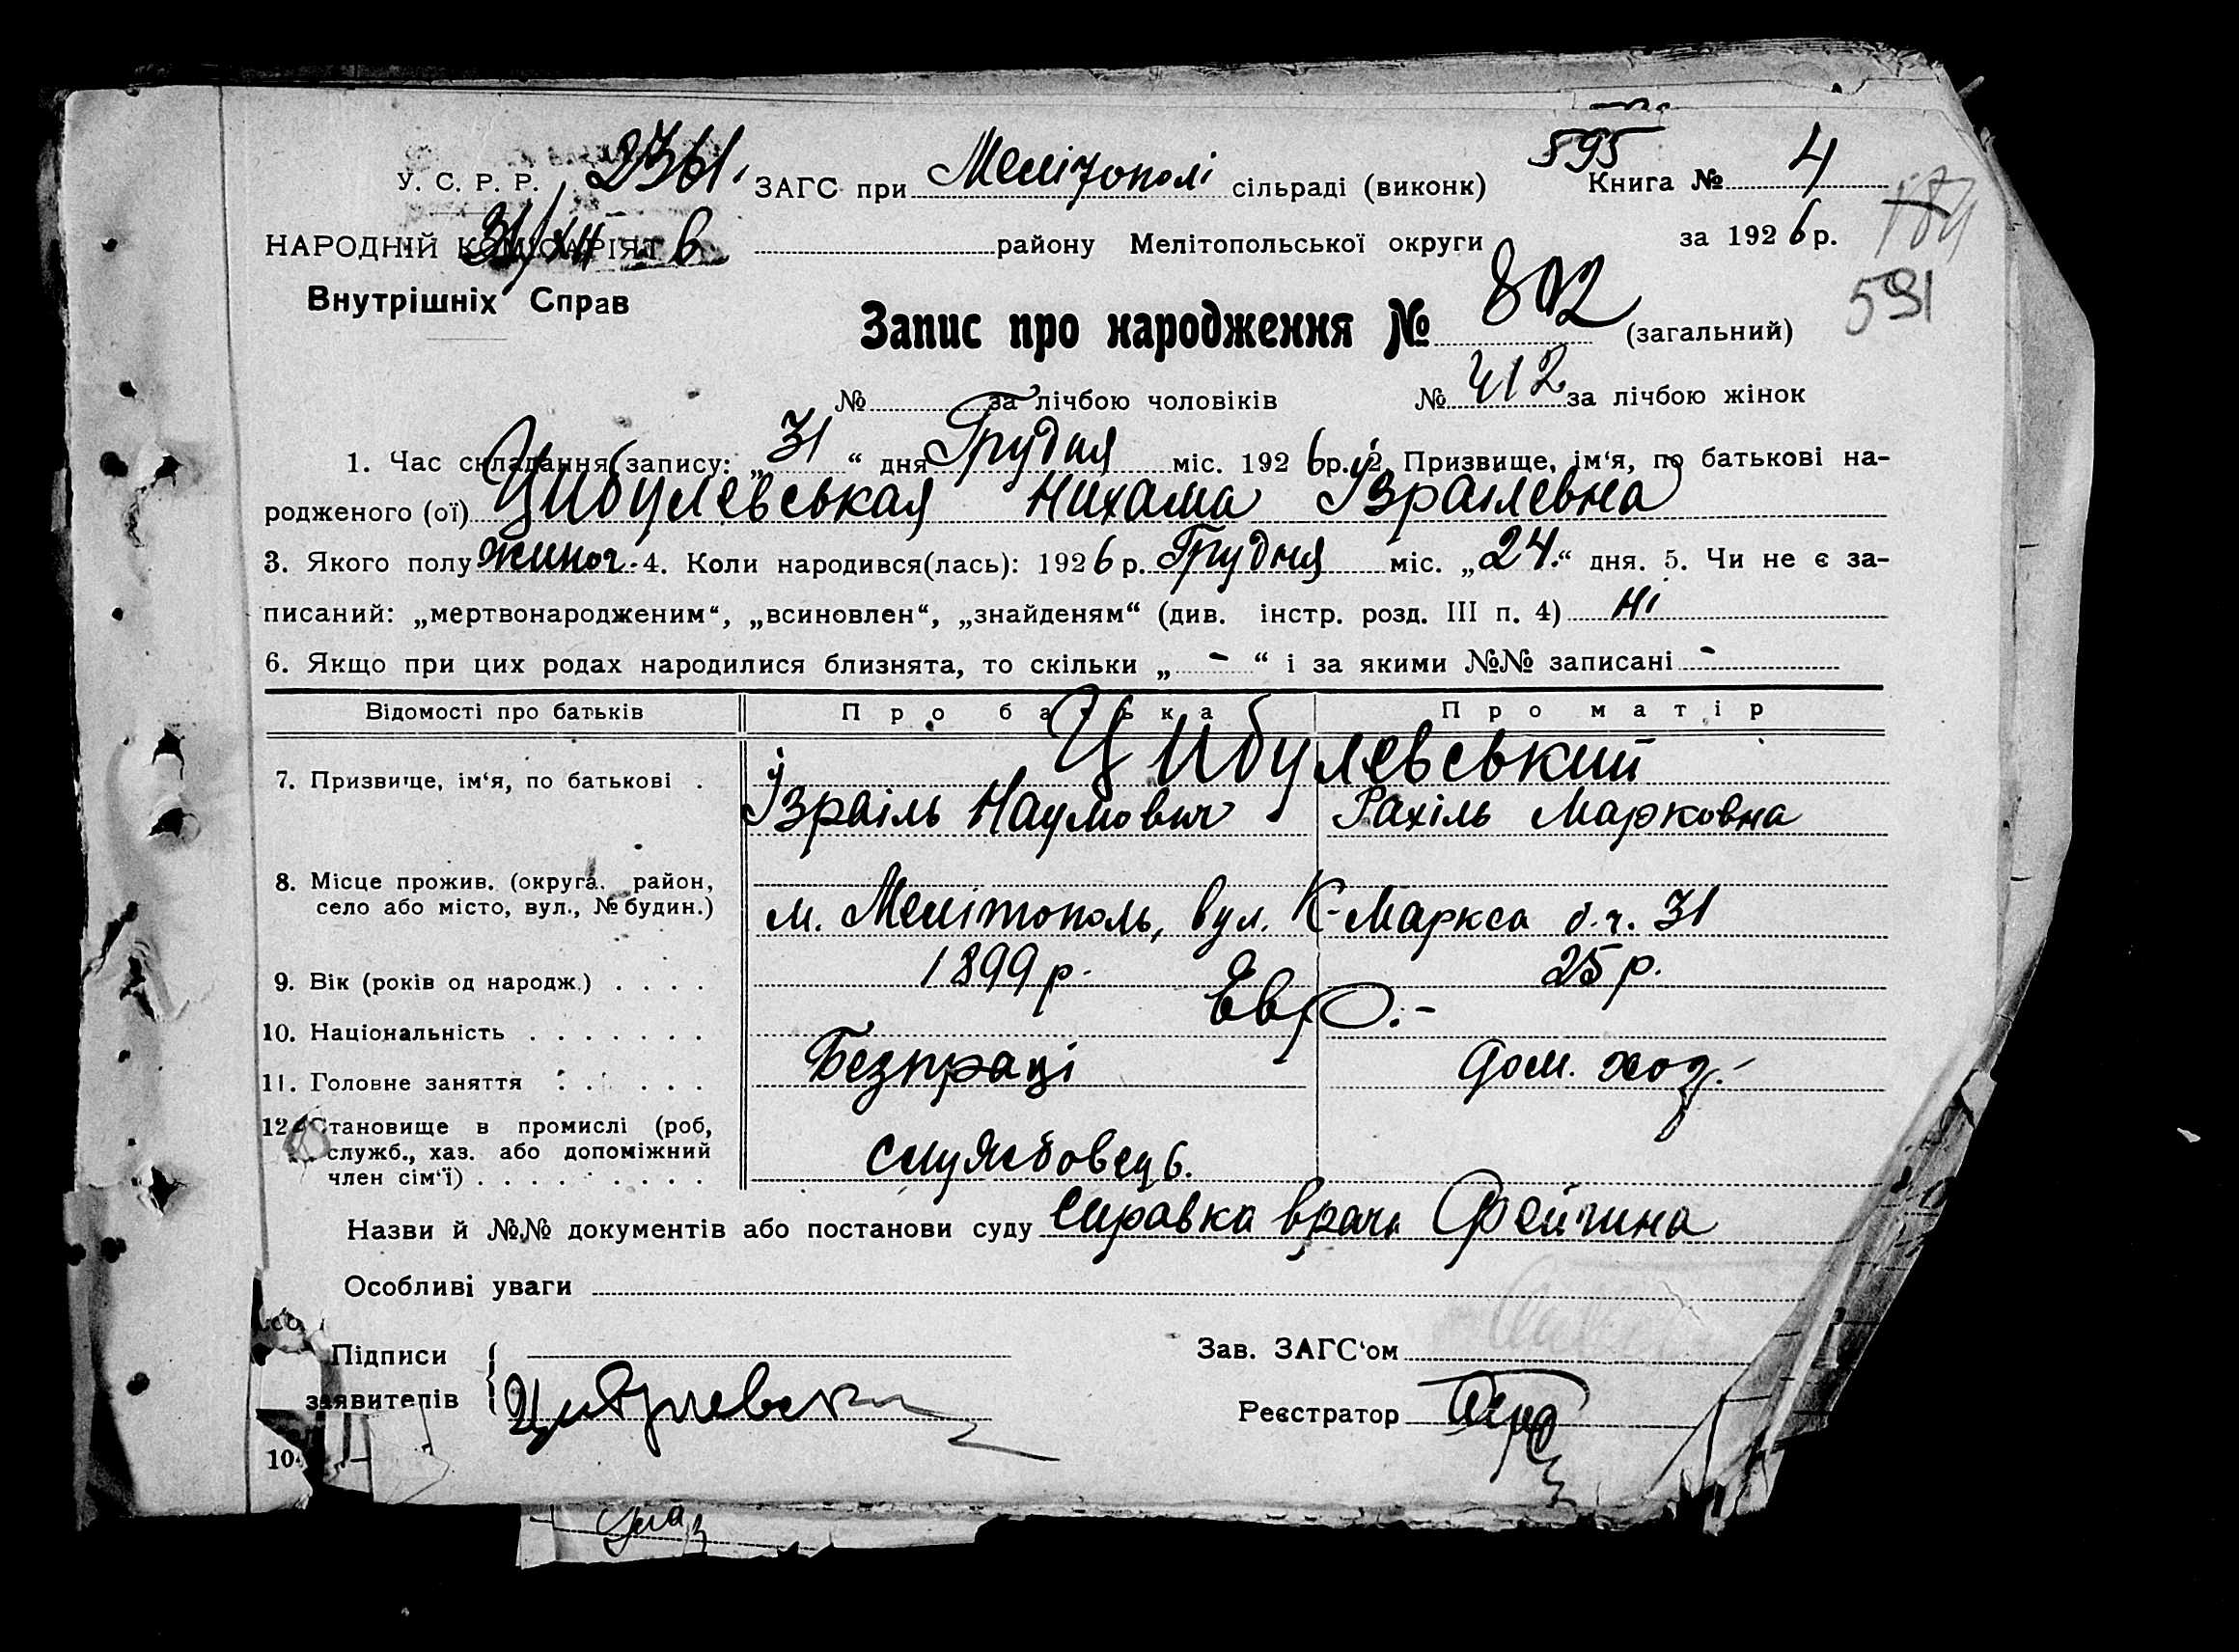 595
У. С. Р. Р. 2361. ЗАГС при Мелітополі сільраді (виконк) Книга № 4
184
НАРОДНІЙ КОМІСАРІЯТ 31/XII 6 району Мелітопольської округи за 1926 р.
591
Внутрішніх Справ
Запис про народження № 802 (загальний)
№ за лічбою чоловіків № 412 за лічбою жінок
1. Час складання запису: „31“ дня Грудня міс. 1926 р. 2. Призвище, ім‘я, по батькові на-
родженого (ої) Цибулевськая Нихама Ізраілевна
3. Якого полу жиноч. 4. Коли народився(лась): 1926 р. Грудня міс. „24.“ дня. 5. Чи не є за-
писаний: „мертвонародженим“, „всиновлен“, „знайденям“ (див. інстр. розд. III п. 4) ні
6. Якщо при цих родах народилися близнята, то скільки „ - “ і за якими №№ записані -
Відомості про батьків Про батька Про матір
7. Призвище, ім‘я, по батькові . Цибулевський
Ізраіль Наумович Рахіль Марковна
8. Місце прожив. (округа, район,
село або місто, вул., № будин.) м. Мелітополь, вул. К-Маркса б.ч. 31
9. Вік (років од народж.) . . . . 1899 р. 25 р.
10. Національність . . . . . . . Евр.-
11. Головне заняття . . . . . . Безпраці Дом. хоз.-
12. Становище в промислі (роб,
служб., хаз. або допоміжний
член сім‘ї) . . . . . . . . . службовець.
Назви й №№ документів або постанови суду Справка врача Фейгина
Особливі уваги
Підписи Зав. ЗАГС‘ом
заявителів Цибулевски Реєстратор
10